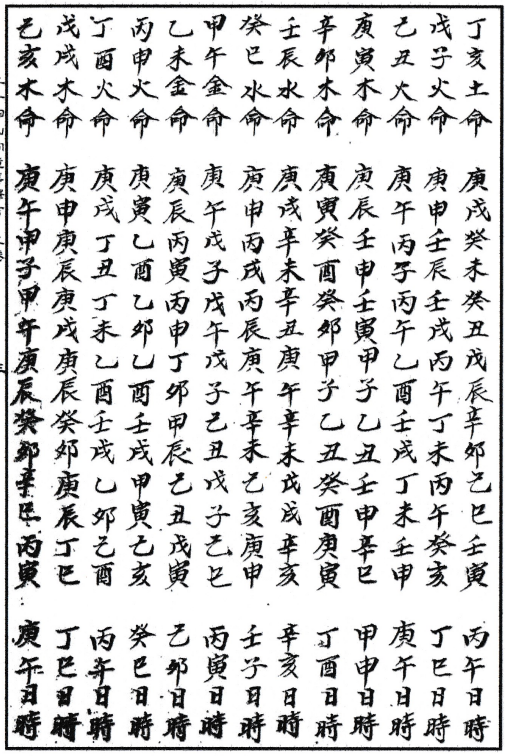 丁亥土命 庚戌癸未癸丑戊辰辛卯己巳壬寅 丙午日時
戊子火命 庚申壬辰壬戌丙午丁未丙午癸亥 丁巳日時
己丑火命 庚午丙子丙午乙酉壬戌丁未壬申 庚午日時
庚寅木命 庚辰壬申壬寅甲子乙丑壬申辛巳 甲申日時
辛卯木命 庚寅癸酉癸卯甲子乙丑癸酉庚寅 丁酉日時
壬辰水命 庚戌辛未辛丑庚午辛未戊戌辛亥 辛亥日時
癸巳水命 庚申丙戌丙辰庚午辛未乙亥庚申 壬子日時
甲午金命 庚午戊子戊午戊子己丑戊子乙巳 丙寅日時
乙未金命 庚辰丙寅丙申丁卯甲辰己丑戊寅 己卯日時
丙申火命 庚寅乙酉乙卯乙酉壬戌甲寅乙亥 癸巳日時
丁酉火命 庚戌丁丑丁未乙酉壬戌乙卯己酉 丙午日時
戊戌木命 庚申庚辰庚戌庚辰癸卯庚辰丁巳 丁巳日時
己亥木命 庚午甲子甲午庚辰癸卯辛巳丙寅 庚午日時